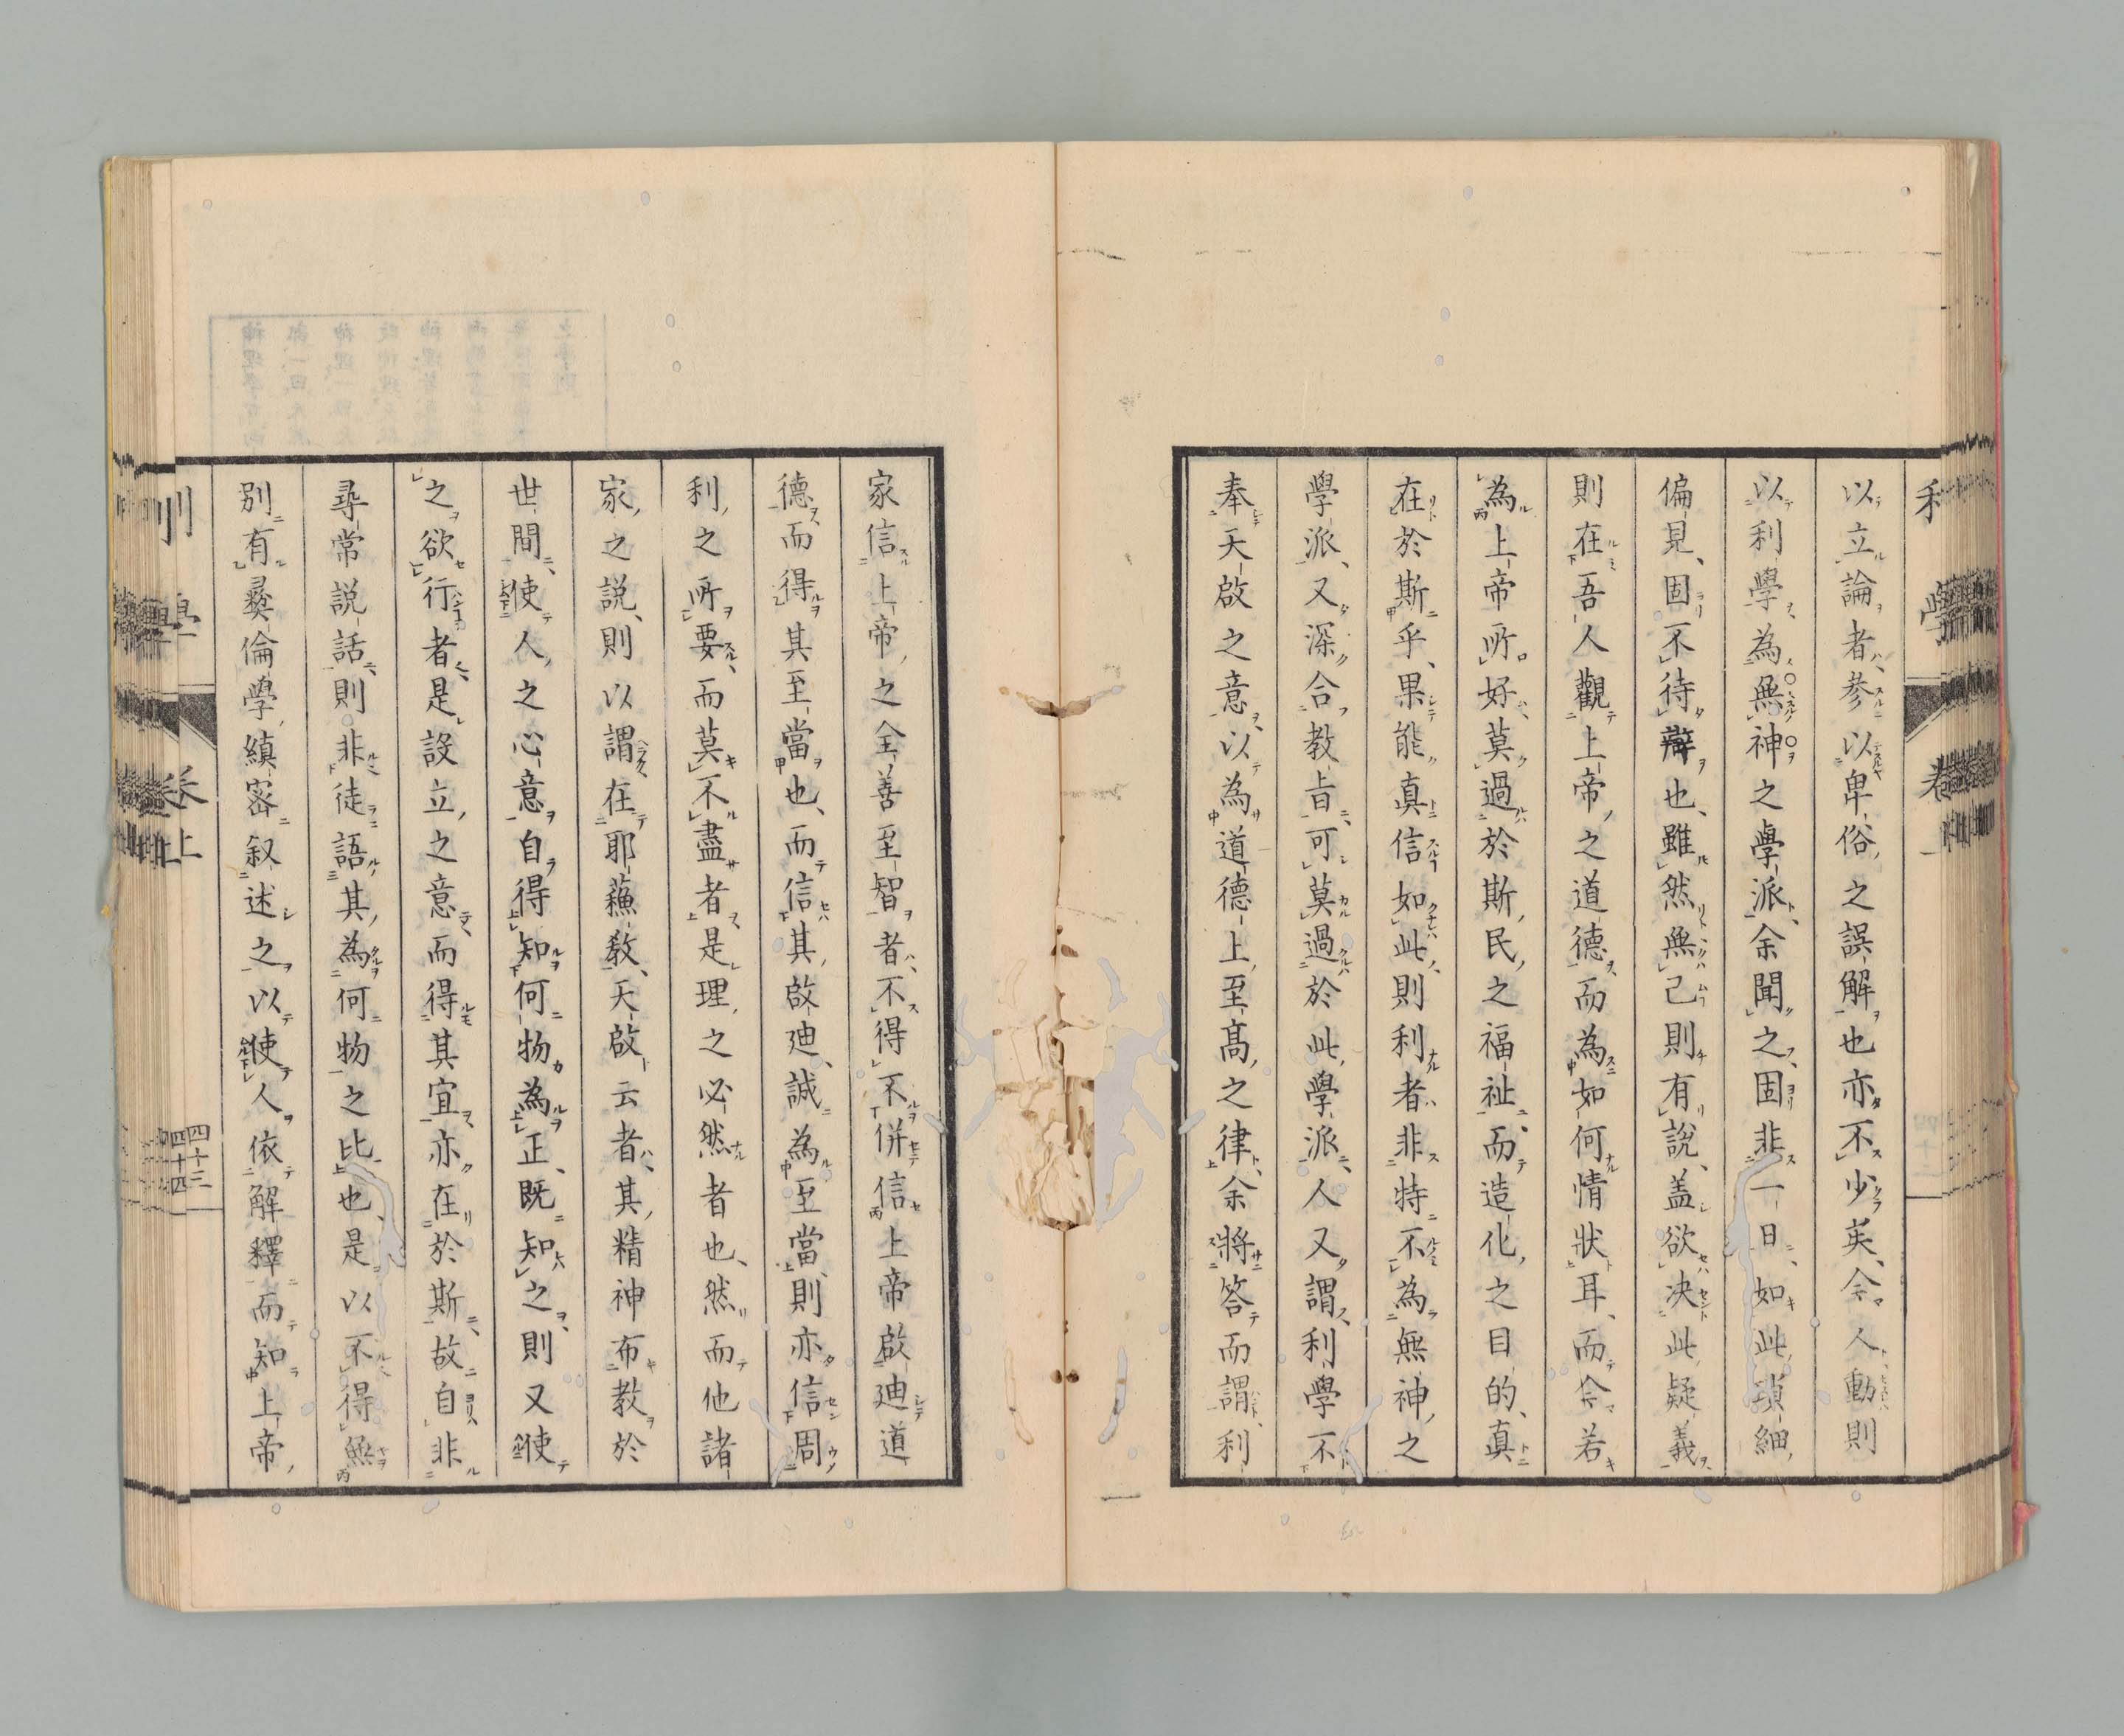 以立論者參以卑俗之誤解也亦不少矣今人動則
以利學、為無神之學派、余聞之、固非一日、如此瑣細
偏見、固不待辯也、雖然無已則有說、蓋欲決此疑義
則在吾人觀上帝之道德、而為如何情狀耳、而今若
為上帝所好莫過於斯民之福祉、而造化之目的、真
在於斯乎、果能真信如此、則利者非特不為無神之
學派、又深合教旨、可莫過於此學派、人又謂、利學不
奉天啟之意、以為道德上至高之律、余將答而謂、利
家信上帝之全善至智者、不得不併信上帝啟迪道
德而得其至當也、而信其啟迪、誠為至當、則亦信周
利之所要、而莫不盡者、是理之必然者也、然而他諸
家之說、則以謂在耶蘇教、天啟云者、其精神布教於
世間、使人之心意自得知何物為正、既知之、則又使
之欲行者、是設立之意、而得其宜、亦在於斯、故自非
尋常說話、則非徒語其為何物之比也、是以不得無
別有彜倫學、縝密叙述之、以使人依解釋而知上帝
利學 卷上 四十三
四十四